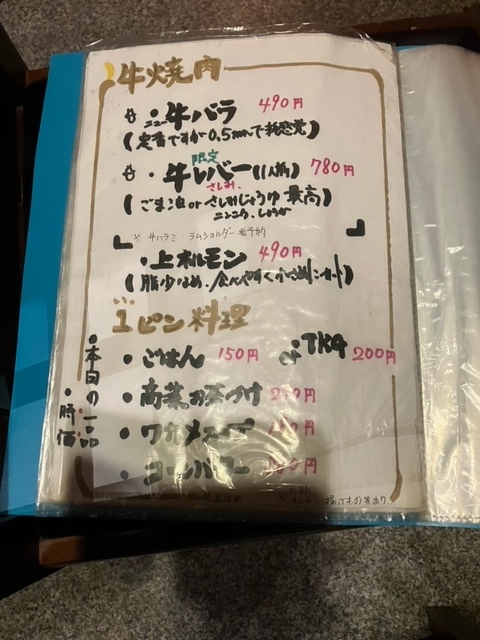 牛焼肉
・牛バラ 490円
(定番ですが0.5mmで新感覚)
限定
・牛レバー(1人前) 780円
さしみ
(ごま油orさしみじょうゆ 最高)
ニンニク、しょうが
※牛ハラミ・ラムショルダー
・上ホルモン 490円
(脂少なめ、食べやすく
1ピン料理
・ごはん 150円
TKG 200円
・高菜お茶づけ
・ワカメスープ
・コールスロー
・本日の一品
・時価